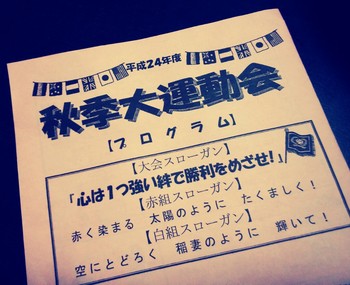 平成24年度
秋季大運動会
【プログラム】
【大会スローガン】
「心は1つ強い絆で勝利をめざせ!」
【赤組スローガン】
赤く染まる 太陽のように たくましく!
【白組スローガン】
空にとどろく 稲妻のように 輝いて!